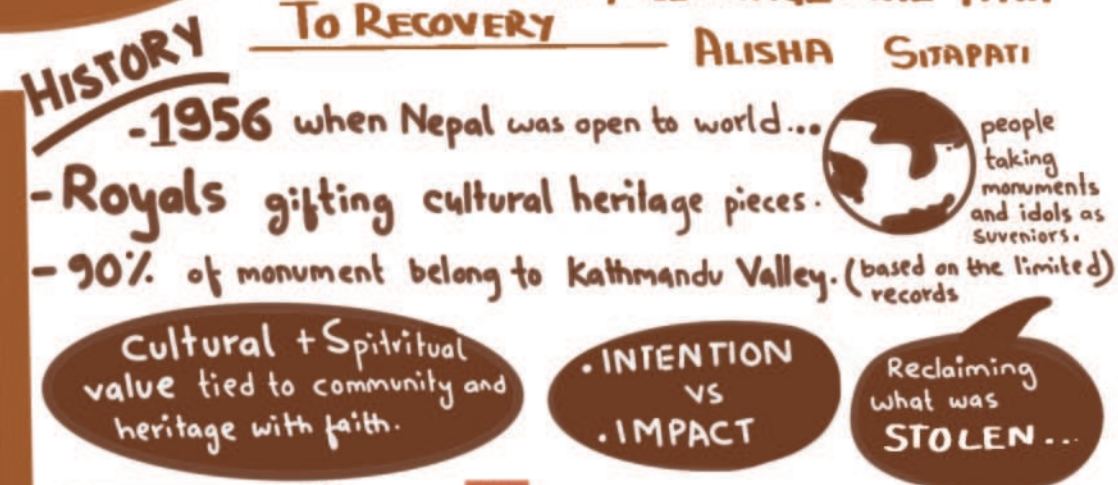 To RECOVERY
ALISHA SITAPATI
HISTORY
-1956 when Nepal was open to world...
people
taking
monuments
and idols as
suveniors.
- Royals gifting cultural heritage pieces.
- 90% of monument belong to Kathmandu Valley. (based on the limited)
records
Cultural + Spitritual
value tied to community and
heritage with faith.
. INTENTION
VS
. IMPACT
Reclaiming
what was
STOLEN...